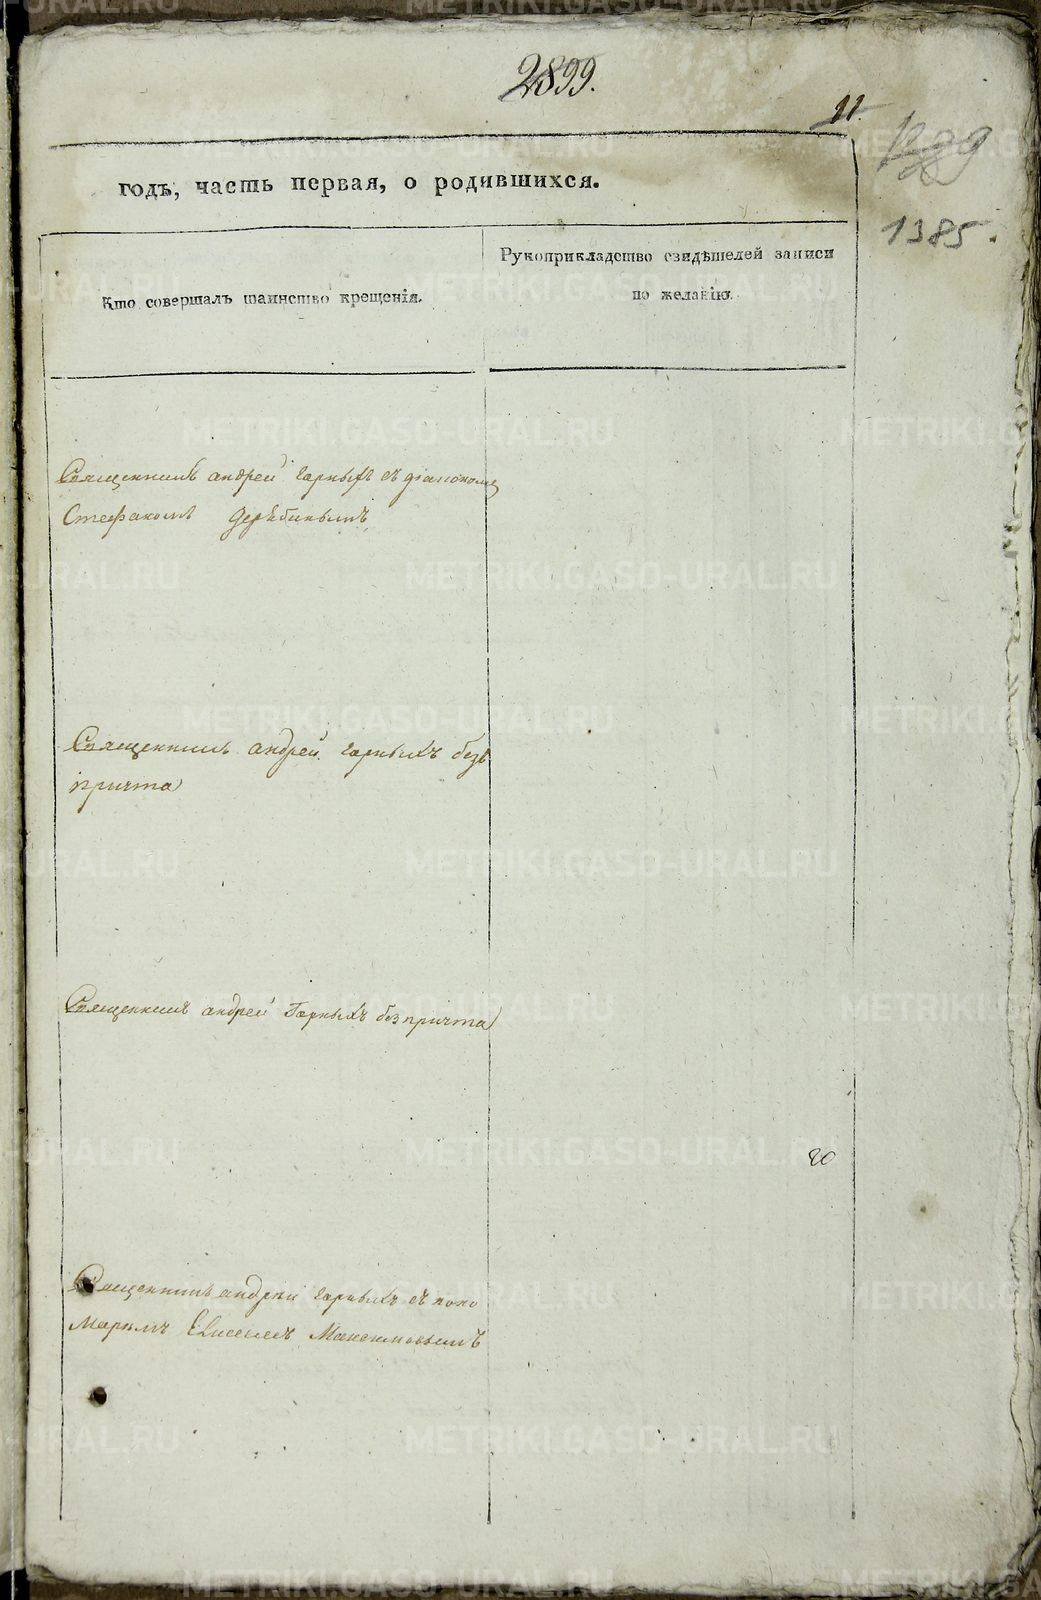 2899.
11.
1385.
годъ, часть первая, о родившихся.
Кто совершалъ таинство крещенія.
Рукоприкладство свидѣтелей записи
по желанію.
Священникъ андрей Горныхъ съ діакономъ
Стефаномъ Дерябинымъ
Священникъ андрей горныхъ безъ
причта
Священникъ андрей Горныхъ без причта
20
Священникъ андрей горныхъ съ поно
маремъ Елисеемъ Максимовымъ
METRIKI.GASO-URAL.RU